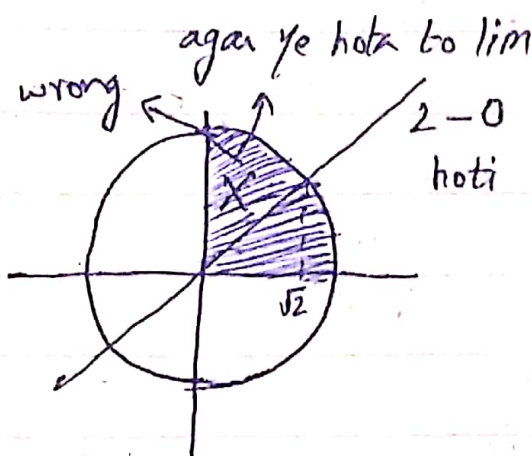 agar ye hota to lim
wrong
2 - 0
hoti
X
√2